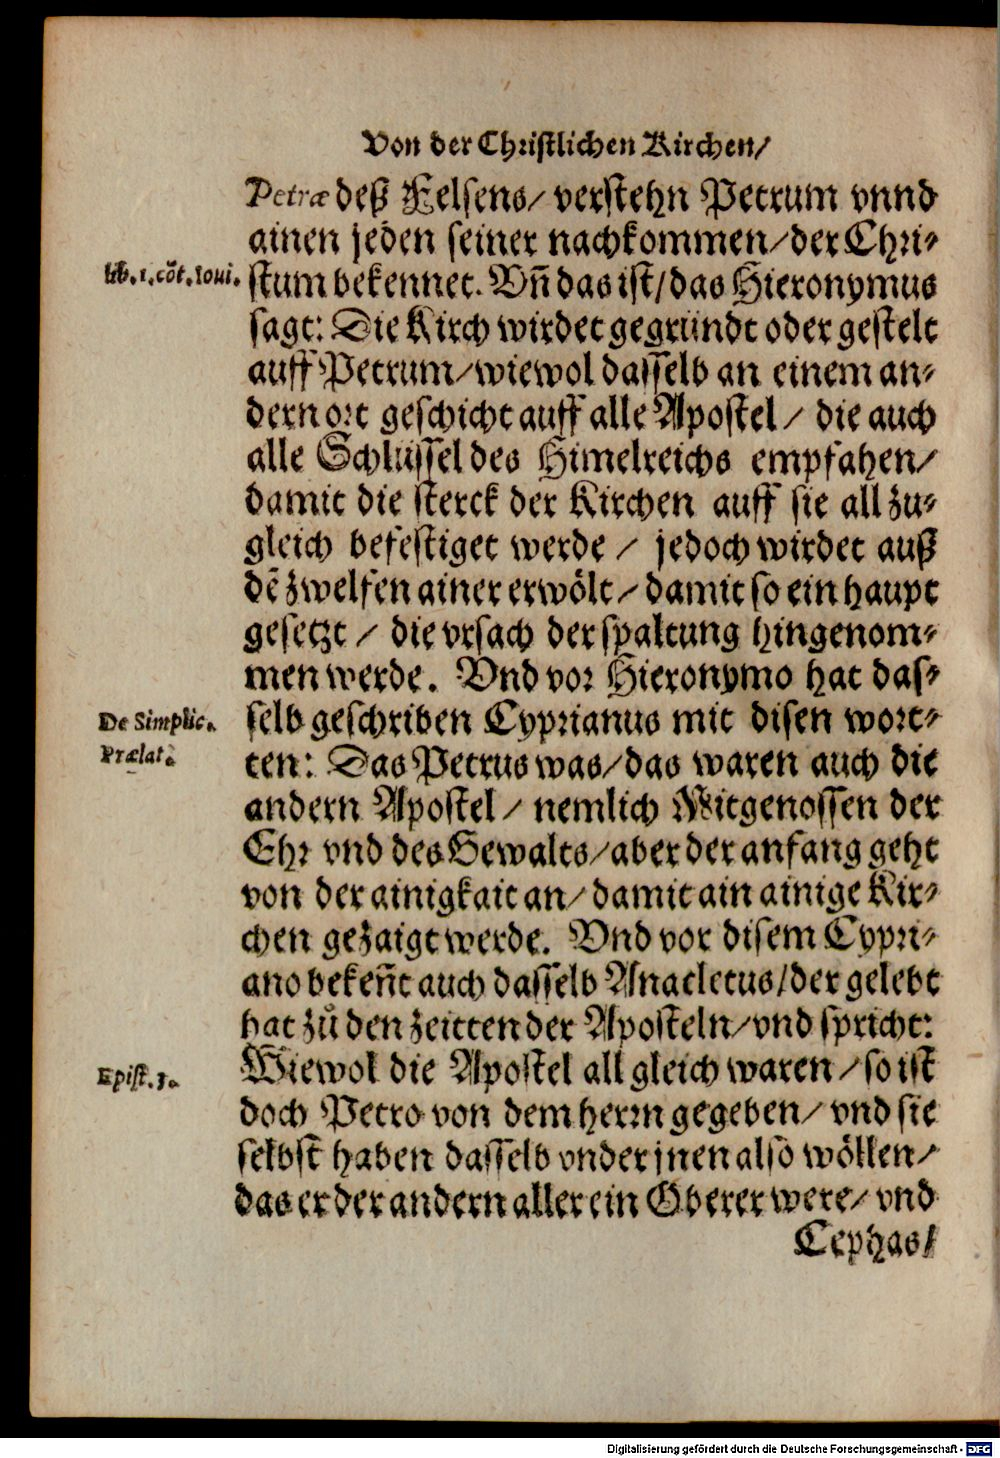 Von der Christlichen Kirchen/
Petræ deß Felsens/ verstehn Petrum vnnd
ainen jeden seiner nachkommen/ der Chri-
lib. 1. cōt. Ioui.
stum bekennet. Vñ das ist/ das Hieronymus
sagt: Die Kirch wirdet gegründt oder gestelt
auff Petrum/ wiewol dasselb an einem an-
dern ort geschicht auff alle Apostel/ die auch
alle Schlüssel des Himelreichs empfahen/
damit die sterck der Kirchen auff sie all zu-
gleich befestiget werde / jedoch wirdet auß
dē zwelfen ainer erwölt/ damit so ein haupt
gesetzt / die vrsach der spaltung hingenom-
men werde. Vnd vor Hieronymo hat das-
De Simplic.
Prælat.
selb geschriben Cyprianus mit disen wort-
ten: Das Petrus was/ das waren auch die
andern Apostel/ nemlich Mitgenossen der
Ehr vnd des Gewalts/ aber der anfang geht
von der ainigkait an/ damit ain ainige Kir-
chen gezaigt werde. Vnd vor disem Cypri-
ano bekeñt auch dasselb Anacletus/ der gelebt
hat zů den zeitten der Aposteln/ vnd spricht:
Epist. 3.
Wiewol die Apostel all gleich waren/ so ist
doch Petro von dem herrn gegeben/ vnd sie
selbst haben dasselb vnder jnen also wöllen/
das er der andern aller ein Oberer were/ vnd
Cephas/
Digitalisierung gefördert durch die Deutsche Forschungsgemeinschaft - DFG